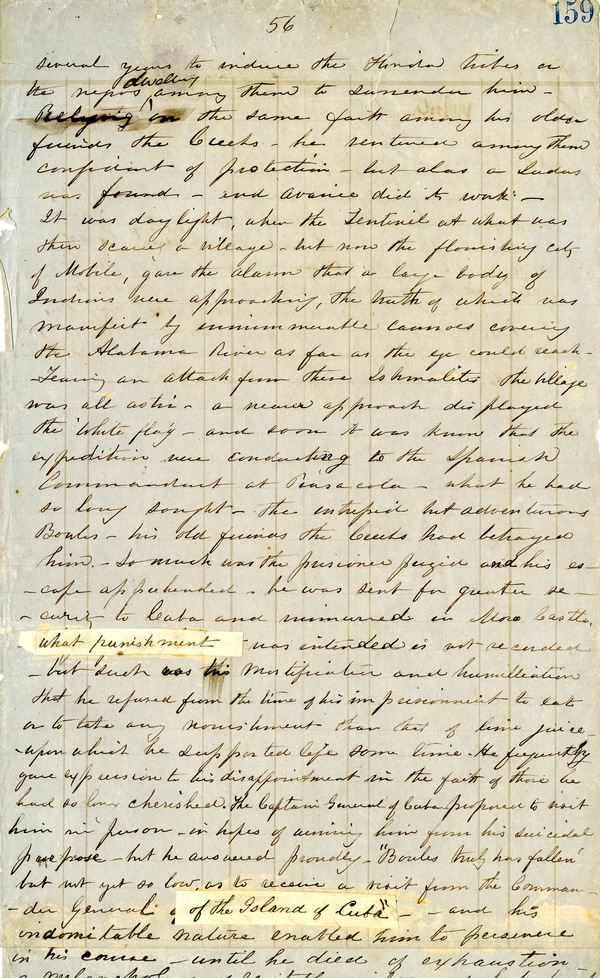 56
159
several years to induce the Florida tribes or
the negros dwelling among them to surrender him -
Relying on the same faith among his older
friends the Creeks - he ventured among them
confident of protection - but alas a Judas
was found - and avarice did its work -
It was daylight, when the Sentinel at what was
then scarce a village - but now the flourishing city
of Mobile, gave the alarm that a large body of
Indians were approaching, the truth of which was
manifest by innumerable cannoes covering
the Alabama River as far as the eye could reach -
Fearing an attack from these Ishmalites the village
was all activ - a nearer approach displayed
the white flag - and soon it was known that the
expedition were conducting to the Spanish
Commandant at Pensacola - what he had
so long sought - the intrepid but adventurous
Bowles - his old friends the Creeks had betrayed
him. - So much was the prisoner prized and his es-
-cape apprehended - he was sent for greater se-
-curity to Cuba and immured in Moro Castle.
what punishment was intended is not recorded
- but such was his mortification and humilliation
that he refused from the time of his imprisonment to eat
or to take any nourishment than that of lime juice -
-upon which he supported life some time. He frequently
gave expression to his disappointment in the faith of those he
had so long cherished. The Captain General of Cuba proposed to visit
him in person - in hopes of winning him from his suicidal
purpose - but he answered proudly - "Bowles truly has fallen
but not yet so low, as to receive a visit from the Comman-
-der General of the Island of Cuba" - - and his
indomitable nature enabled him to persevere
in his course - until he died of exhaustion -